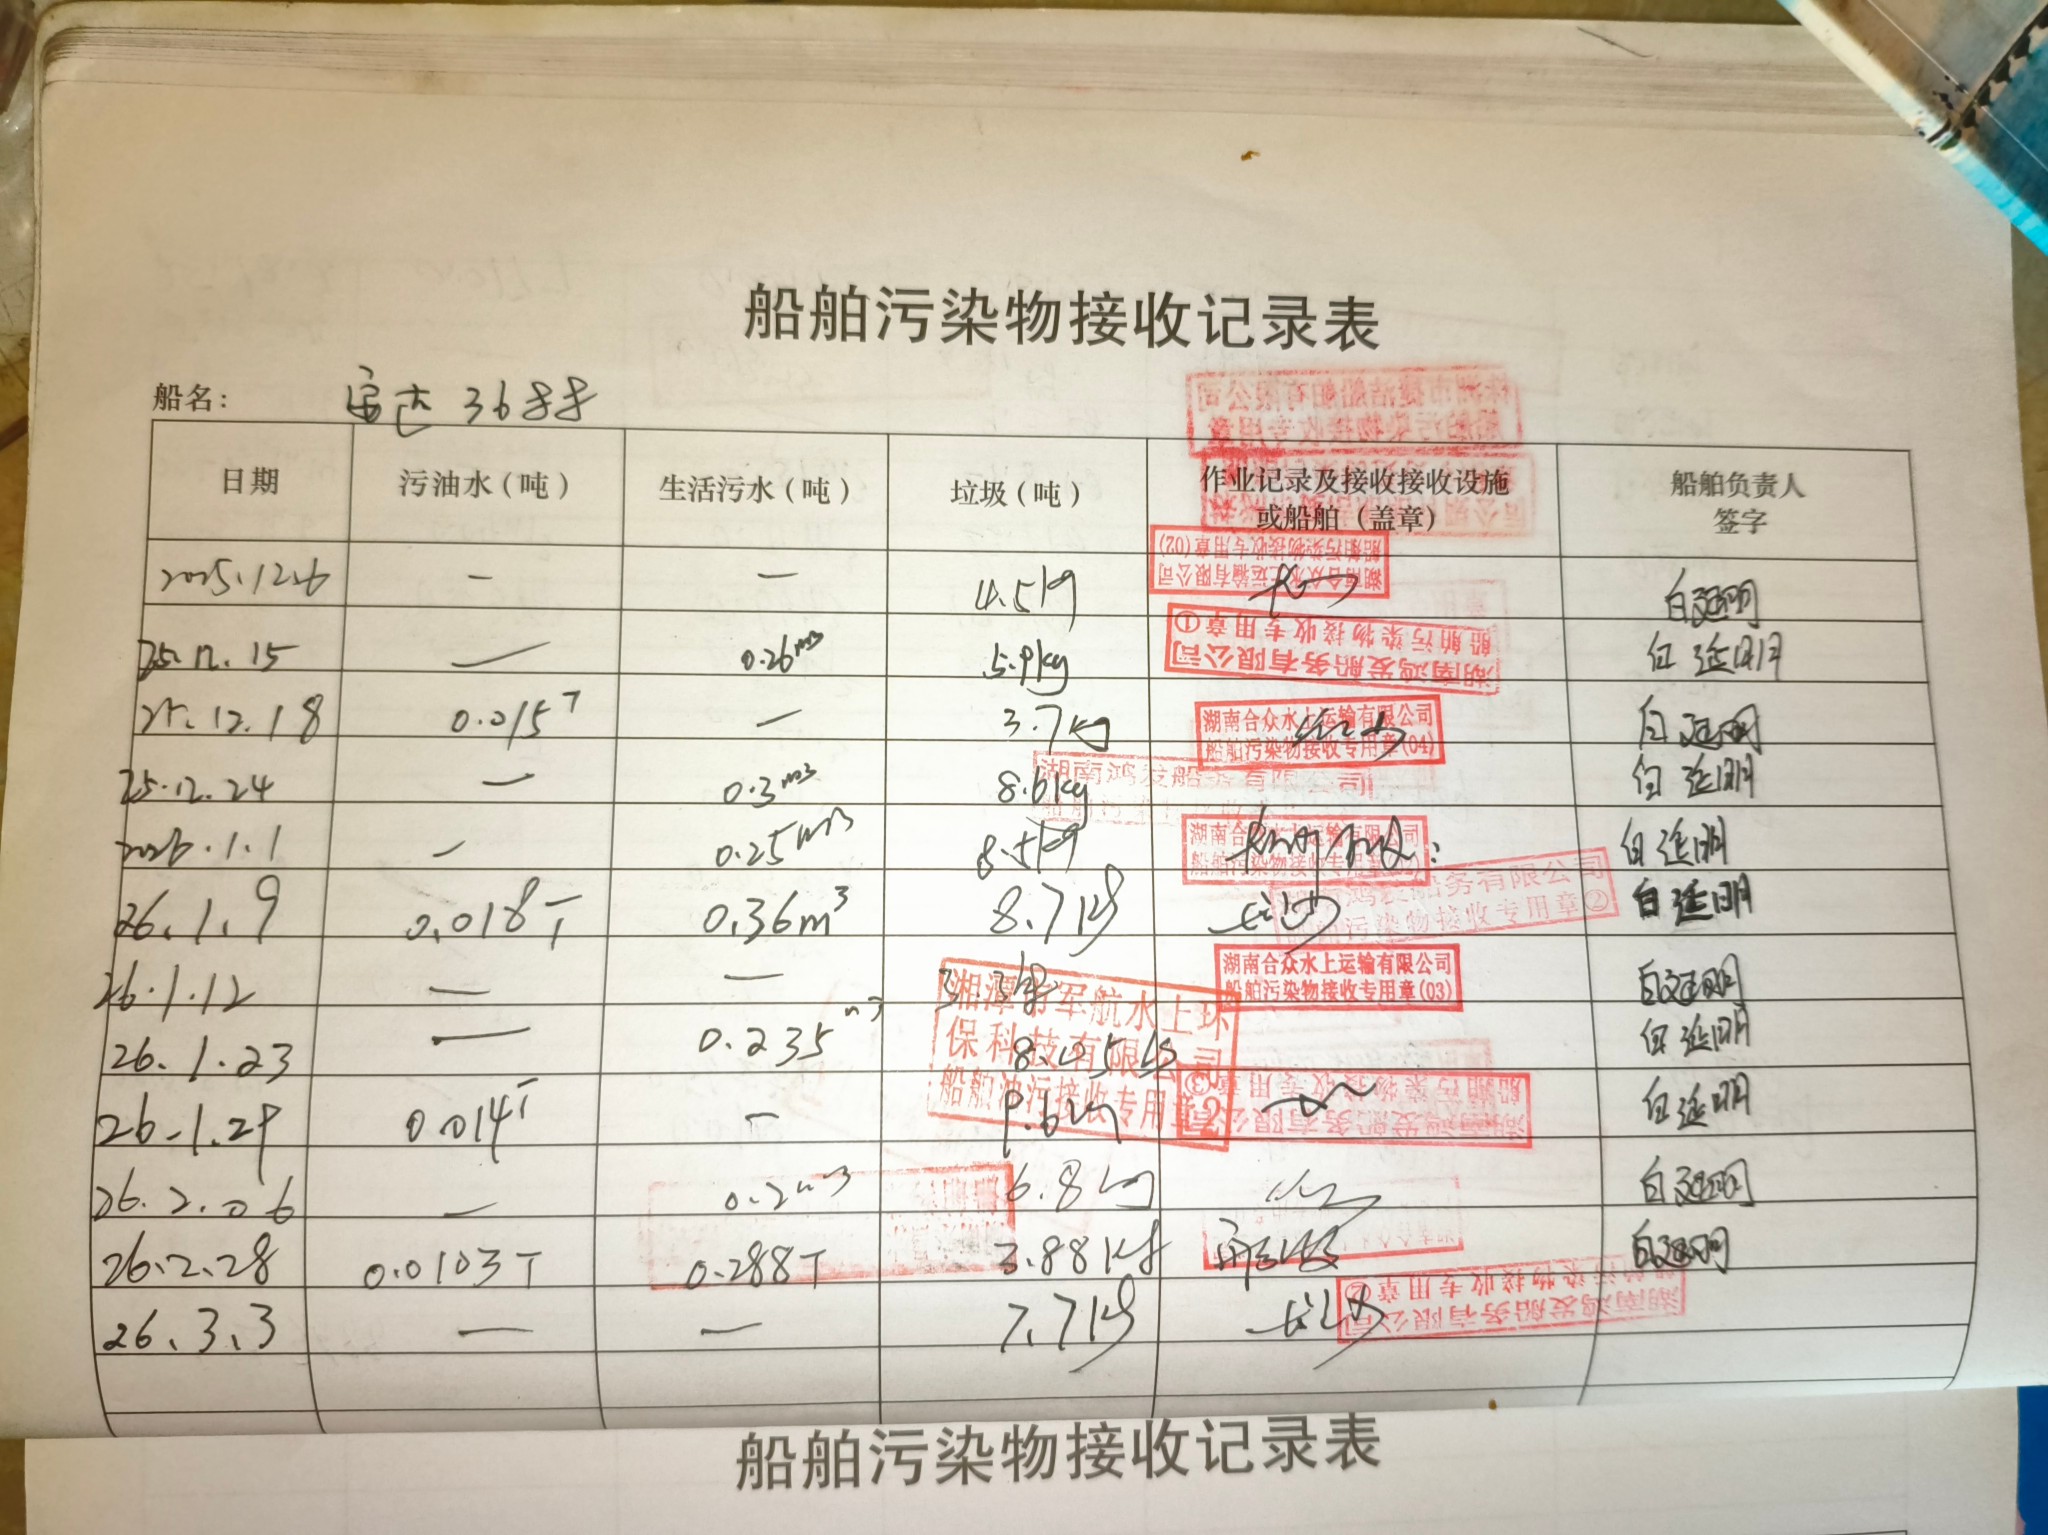 船舶污染物接收记录表
船名： 宏达 3688
日期 污油水（吨） 生活污水（吨） 垃圾（吨） 作业记录及接收接收设施或船舶（盖章） 船舶负责人签字
2025.12.6 — — 4.5kg 湖南合众水上运输有限公司 船舶污染物接收专用章(02) 白延明
25.12.15 — 0.26m3 5.9kg 湖南鸿发船务有限公司 船舶污染物接收专用章① 白延明
25.12.18 0.015T — 3.7kg 湖南合众水上运输有限公司 船舶污染物接收专用章(04) 白延明
25.12.24 — 0.3m3 8.6kg 湖南鸿发船务有限公司 白延明
2026.1.1 — 0.25m3 8.5kg 湖南合众水上运输有限公司 船舶污染物接收专用章 白延明
26.1.9 0.018T 0.36m3 8.7kg 长沙 船务有限公司 污染物接收专用章② 白延明
26.1.12 — — 湖南合众水上运输有限公司 船舶污染物接收专用章(03) 白延明
26.1.23 — 0.235m3 湘潭 军航水上环保科技有限公司 船舶油污接收专用章2 白延明
26.1.29 0.014T — 9.6kg 湖南鸿发船务有限公司 船舶污染物接收专用章③ 白延明
26.2.06 — 0.2m3 6.8kg 白延明
26.2.28 0.0103T 0.288T 3.88kg 白延明
26.3.3 — — 7.7kg 长沙 湖南鸿发船务有限公司 接收专用章②
船舶污染物接收记录表